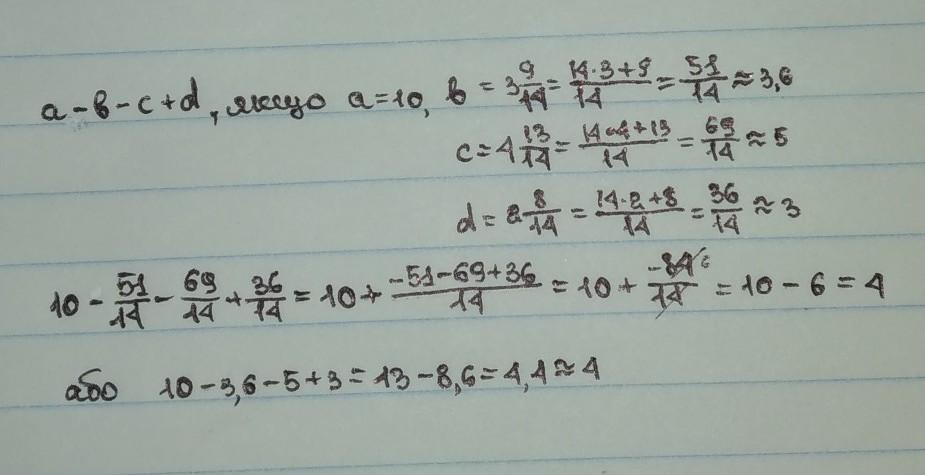 a - b - c + d, якщо a = 10, b = 3 9/14 = (14·3+9)/14 = 51/14 ≈ 3,6
c = 4 13/14 = (14·4+13)/14 = 69/14 ≈ 5
d = 2 8/14 = (14·2+8)/14 = 36/14 ≈ 3
10 - 51/14 - 69/14 + 36/14 = 10 + (-51-69+36)/14 = 10 + -84 6/14 = 10 - 6 = 4
або 10 - 3,6 - 5 + 3 = 13 - 8,6 = 4,4 ≈ 4